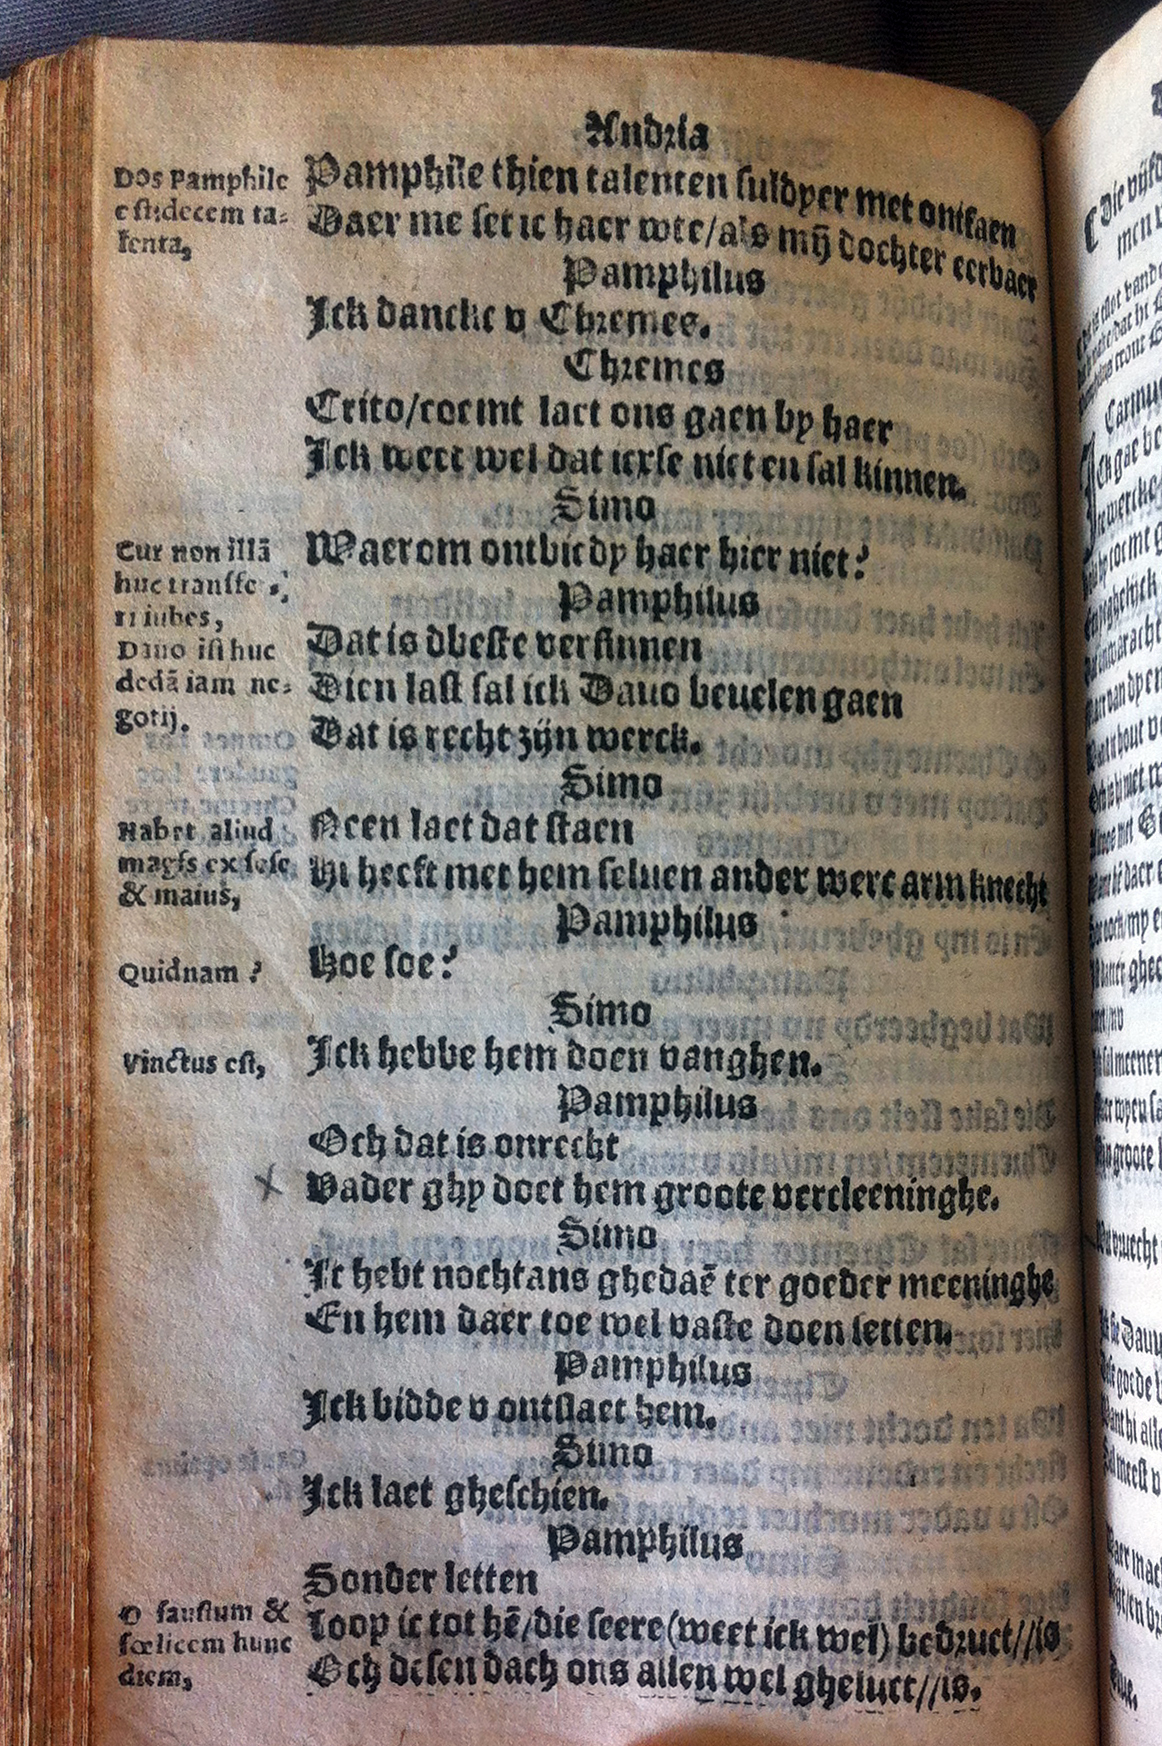 Andria
Dos Pamphile
est: decem ta-
lenta,
Pamphile thien talenten suldyer met ontfaen
Daer me set ic haer wte/als mȳ dochter eerbaer
Pamphilus
Ick dancke v Chremes.
Chremes
Crito/coemt laet ons gaen by haer
Ick weet wel dat icxse niet en sal kinnen.
Simo
Cur non illā
huc transfe
ri iubes,
Waerom ontbiedy haer hier niet?
Pamphilus
Dauo isthuc
dedā iam ne-
gotij.
Dat is dbeste versinnen
Dien last sal ick Dauo beuelen gaen
Dat is recht zijn werck.
Simo
Habet aliud
magis ex sese
& maius,
Neen laet dat staen
Hi heeft met hem seluen ander werc arm knecht
Pamphilus
Quidnam?
Hoe soe?
Simo
Vinctus est,
Ick hebbe hem doen vanghen.
Pamphilus
Och dat is onrecht
Vader ghy doet hem groote vercleeninghe.
Simo
Ic hebt nochtans ghedaē ter goeder meeninghe
En hem daer toe wel vaste doen setten.
Pamphilus
Ick bidde v ontslaet hem.
Simo
Ick laet gheschien.
Pamphilus
Sonder letten
O faustum &
fœlicem hunc
diem,
Loop ic tot hē/die seere (weet ick wel) bedruct//is
Och desen dach ons allen wel gheluct//is.